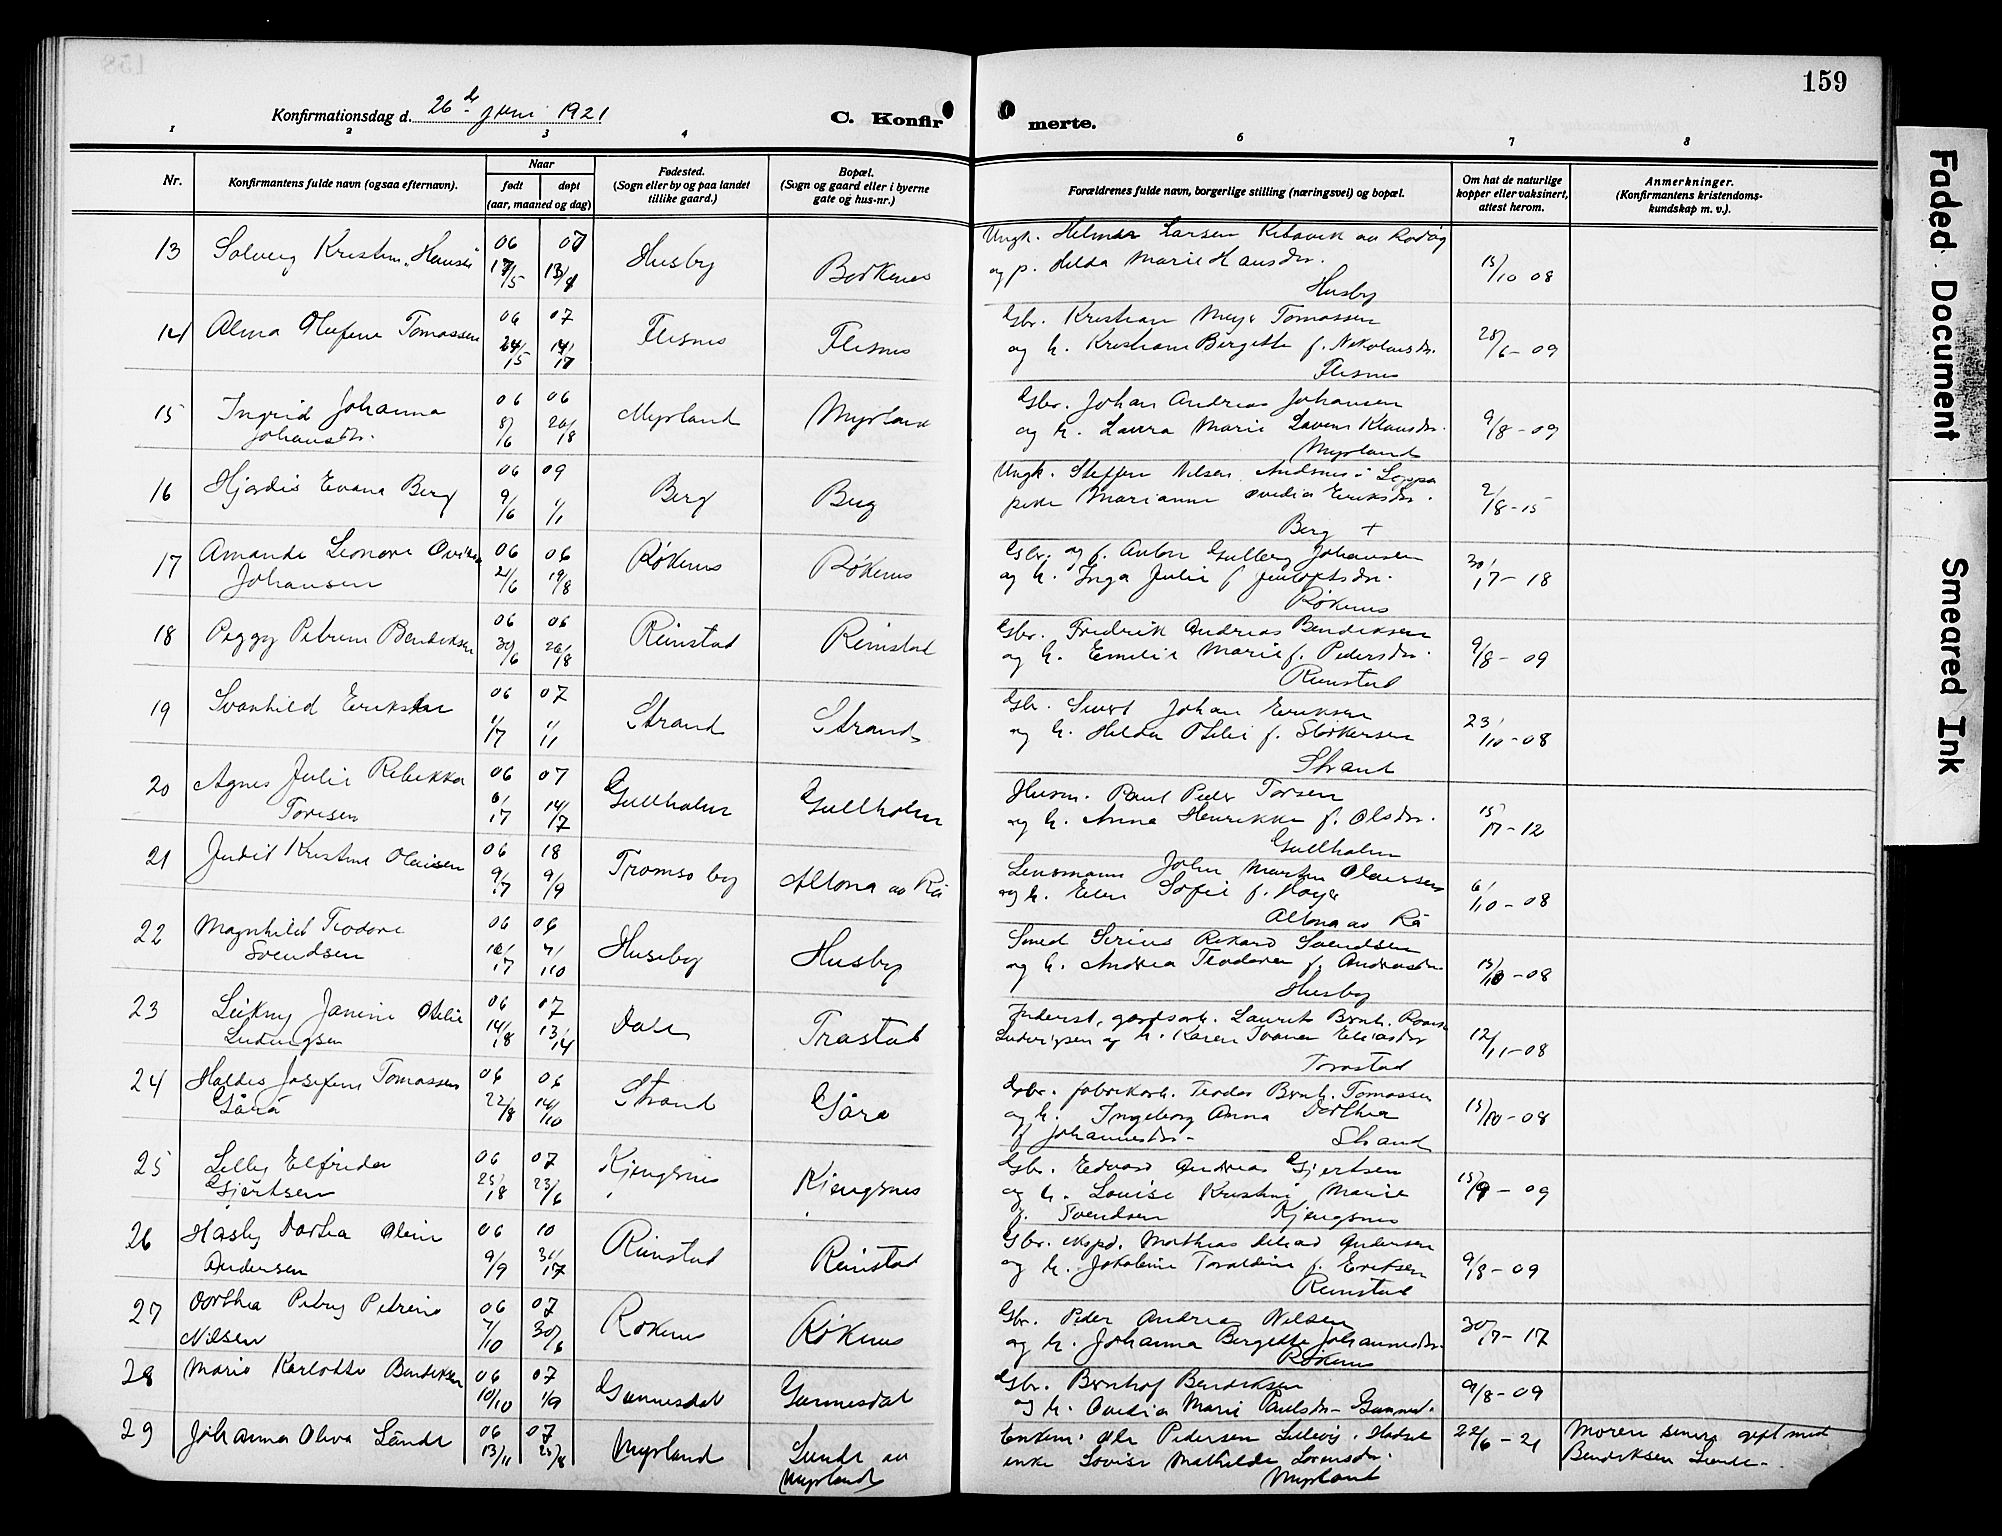 159
Konfirmationsdag d. 26 de juni 1921
C. Konfirmerte.
1 2 3 4 6 7 8
Nr.
Konfirmantens fulde navn (ogsaa efternavn).
Naar
født døpt
(aar, maaned og dag)
Fødested.
(Sogn eller by og paa landet
tillike gaard.)
Bopæl.
(Sogn og gaard eller i byerne
gate og hus-nr.)
Forældrenes fulde navn, borgerlige stilling (næringsvei) og bopæl.
Om hat de naturlige
kopper eller vaksinert,
attest herom.
Anmerkninger.
(Konfirmantens kristendoms-
kundskap m. v.).
13 Solveig Kristin. 06 07 Husby
Ungk. Helmer Larsen
og p. Hilda Marie Hansdr. 15/10 08
Husby
14 Alma Olufine Tomassen 06 07 Flesnes Flesnes
24/5 14/7
Gbr. Kristian Meyer Tomassen
og h. Kristiane Bergitte f. Nikolaisdr. 28/6 - 09
Flesnes
15 Ingrid Johanna 06 06 Myrland Myrland
Johansdr. 8/6 26/8
Gbr. Johan Andreas Johansen
og h. Laura Marie Klausdr. 9/8 - 09
Myrland
16 Hjørdis Evana Berg 06 09 Berg Berg
9/6 1/1
Ungk. Steffen Nilsen Andsnes i Loppa
pike Marianne Ovedia Eriksdr. 2/8 - 15
Berg +
17 Amanda Leonore 06 06 Røkenes Røkenes
Johansen 21/6 19/8
Gbr. og f. Anton Gulberg Johansen
og h. Inga Julie f. 30/7 - 18
Røkenes
18 Peggy Petrine Bendiksen 06 06 Reinstad Reinstad
30/6 26/8
Gbr. Fredrik Andreas Bendiksen
og h. Emelie Marie f. Pedersdr. 9/8 - 09
Reinstad
19 Svanhild Eriksen 06 07 Strand Strand
1/7 1/1
Gbr. Sivert Johan Eriksen
og h. Helda Otelie f. Storkersen 23/10 - 08
Strand
20 Agnes Julie Rebekka 06 07 Gullholm Gullholm
Toresen 6/7 14/7
Husm. Paul Peder Torsen
og h. Anna Henrikke f. Olsdr. 15/7 - 12
Gullholm
21 Judit Kristine Olaisen 06 18 Tromsø by Altona av Rå
9/7 9/9
Lensmann John Martin Olaissen
og h. Elen Sofie f. Høyer 6/10 - 08
Altona av Rå
22 Magnhild Teodore 06 06 Huseby Husby
Svendsen 10/7 7/10
Smed Sirius Rikard Svendsen
og h. Andrea Teodora f. Andreasdr. 15/10 - 08
Husby
23 Leikny Janine Otelie 06 07 Dale Trastad
Ludvigsen 14/8 13/14
Inderst, gardsarb. Laurits Brnh.
Ludvigsen og h. Karen Ivana Eliasdr 12/11 - 08
Trastad
24 Haldis Josefine Tomassen 06 06 Strand Gårå
Gårå 22/8 14/10
Gbr. fabrikarb. Teodor Brnh. Tomassen
og h. Ingeborg Anna Dorthea 15/10 - 08
f Johannesdr - Strand
25 Lilly Elfrida 06 07 Kjengsnes Kjengsnes
Gjertsen 25/8 23/6
Gbr. Edvard Andreas Gjertsen
og h. Louise Kristine Marie 15/9 - 09
f. Svendsen Kjengsnes
26 Hasly Dortea Oline 06 10 Reinstad Reinstad
Andersen 9/9 31/7
Gbr. eksped. Mathias Andersen
og h. Jakobine Toraldine f. Eriksen 9/8 - 09
Reinstad
27 Dorthea Petry Petrine 06 07 Røkenes Røkenes
Nilsen 7/10 30/6
Gbr. Peder Andreas Nilsen
og h. Johanna Bergette Johannesdr. 30/7 - 17
Røkenes
28 Marie Karlotte Bendiksen 06 07 Gammesdal Gammesdal
10/10 1/9
Gbr. Brnhof Bendiksen 9/8 - 09
og h. Ovedia Marie Paulsdr -
29 Johanna Oliva Lunde 06 07 Myrland Lunde av
13/11 25/8 Myrland
Enkem. Ole Pedersen i Hadsel 22/6 - 21 Moren senere gift med
enke Lovise Mathilde Sørensdr. Bendiksen Lunde.
Myrland
Faded Document
Smeared Ink